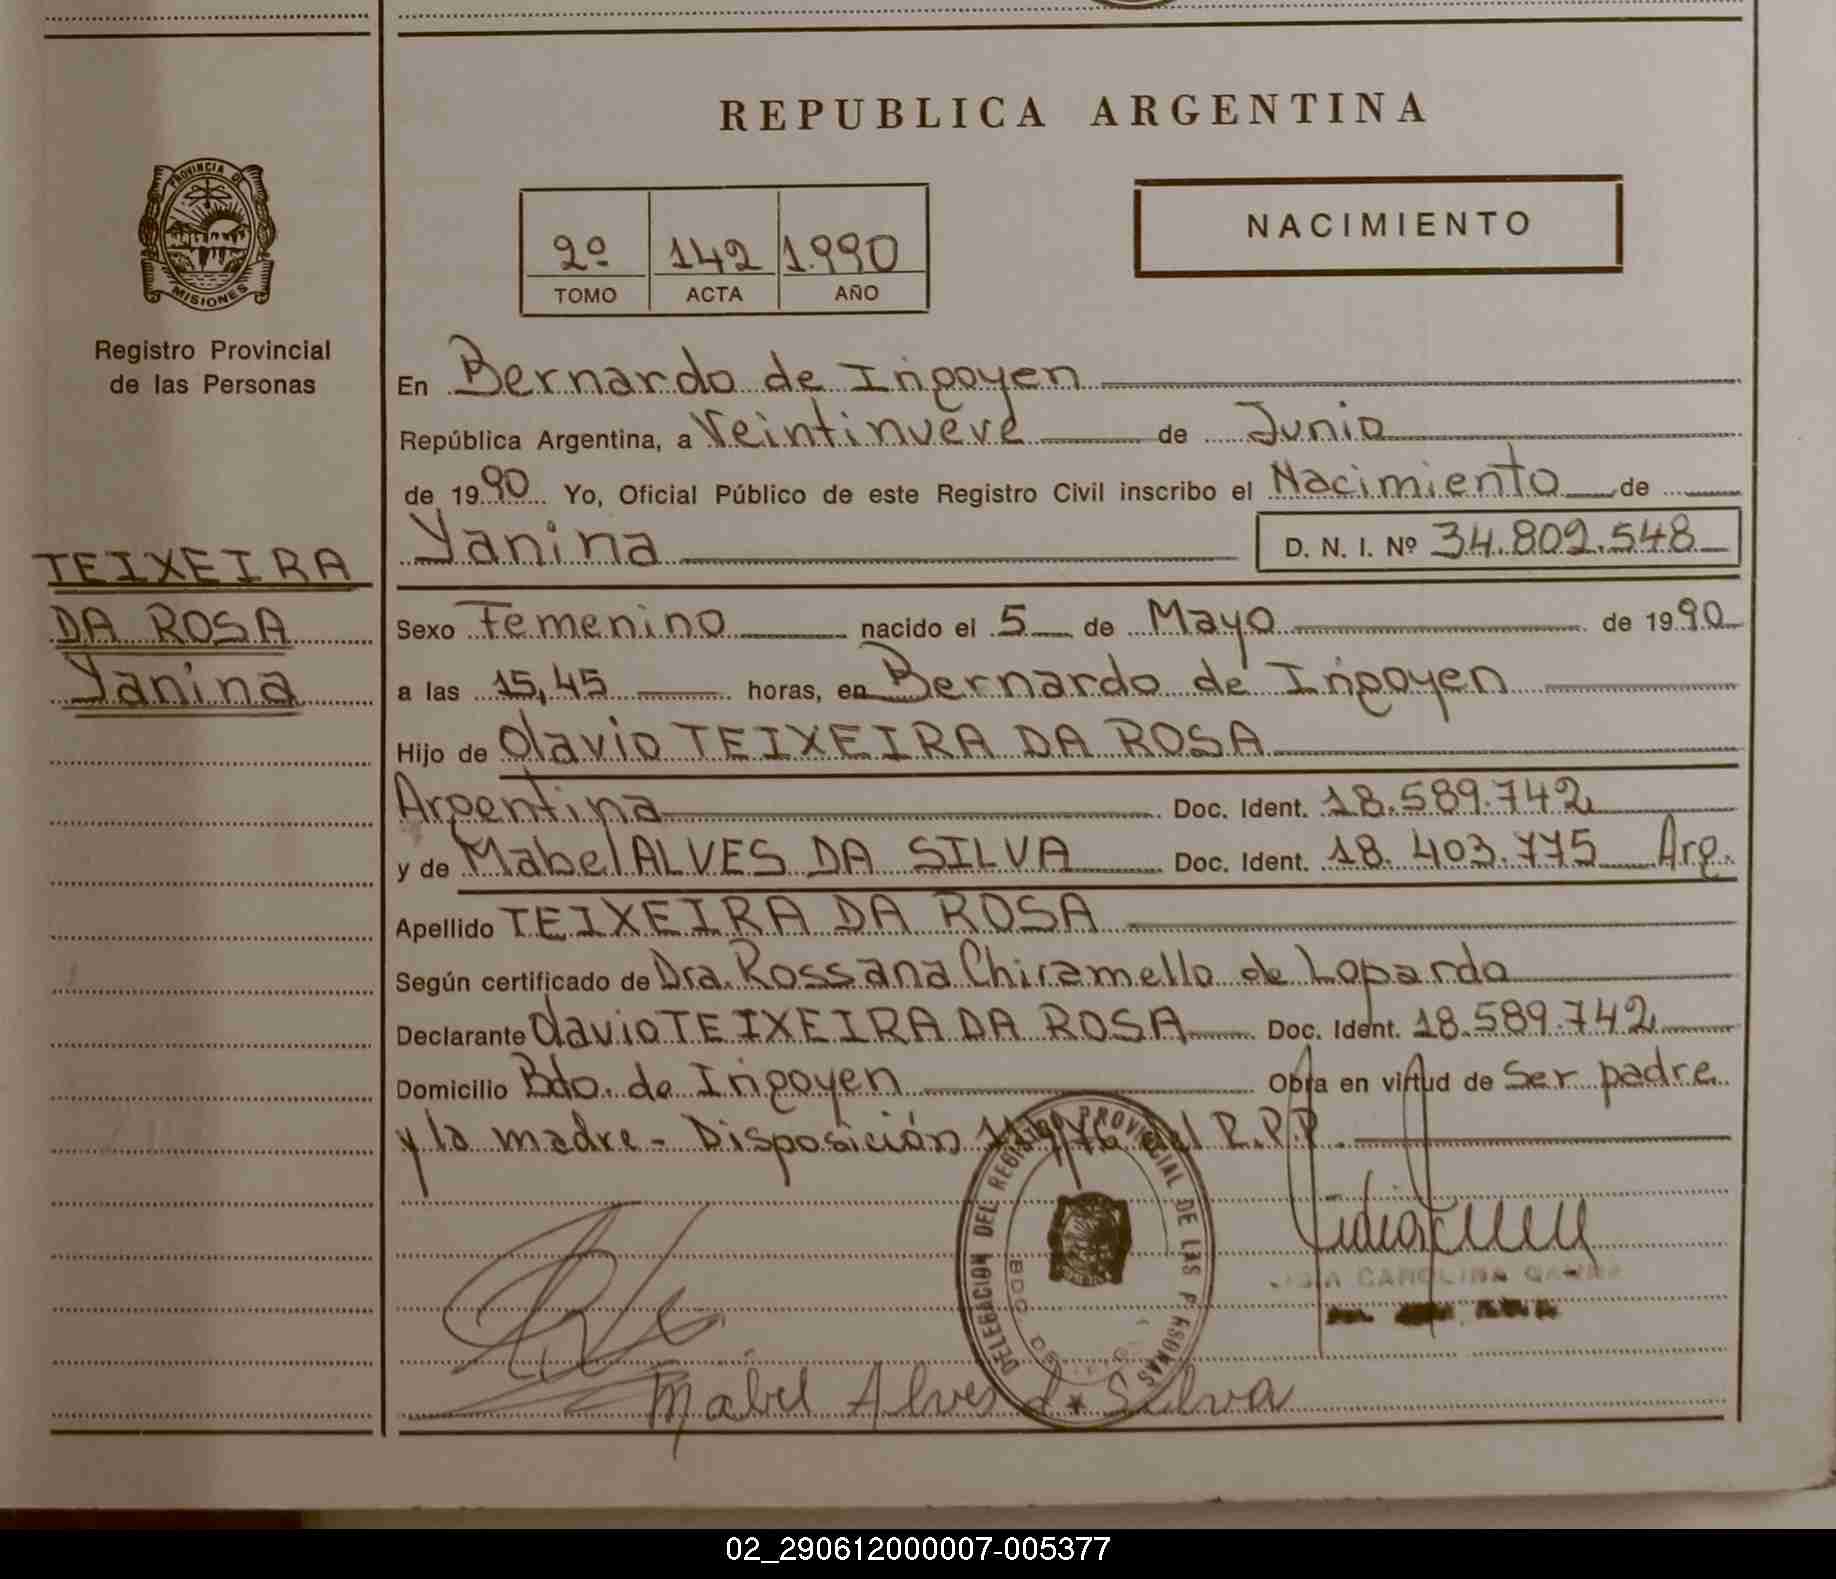 REPUBLICA ARGENTINA
PROVINCIA DE
MISIONES
Registro Provincial
de las Personas
TEIXEIRA
DA ROSA
Yanina
NACIMIENTO
2º 142 1.990
TOMO ACTA AÑO
En Bernardo de Irigoyen
República Argentina, a Veintinueve de Junio
de 1990 Yo, Oficial Público de este Registro Civil inscribo el Nacimiento de
Yanina D. N. I. Nº 34.802.548
Sexo Femenino nacido el 5 de Mayo de 1990
a las 15,45 horas, en Bernardo de Irigoyen
Hijo de Olavio TEIXEIRA DA ROSA
Argentina Doc. Ident. 18.589.742
y de Mabel ALVES DA SILVA Doc. Ident. 18.403.775 Arg.
Apellido TEIXEIRA DA ROSA
Según certificado de Dra. Rossana Chiramello de Lopardo
Declarante Olavio TEIXEIRA DA ROSA Doc. Ident. 18.589.742
Domicilio Bdo. de Irigoyen Obra en virtud de Ser padre
y la madre - Disposición del R.P.P.
DELEGACION DEL REGISTRO PROVINCIAL DE LAS PERSONAS
CAROLINA
Mabel Alves d Silva
02_290612000007-005377